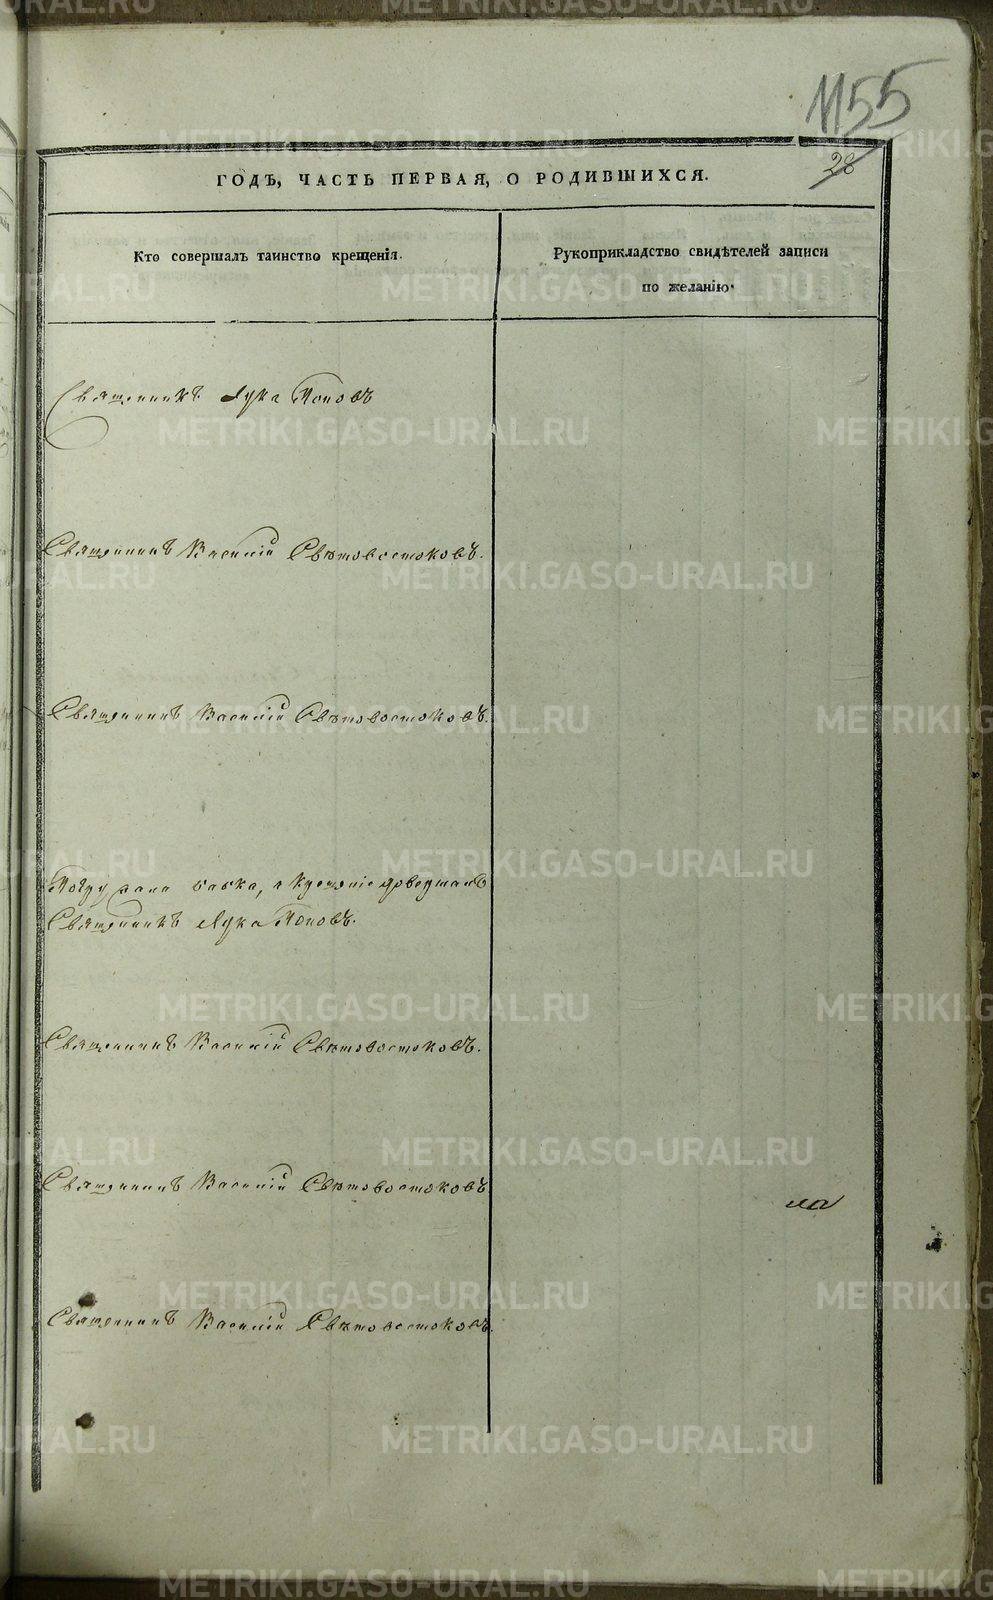 1155
28
ГОДЪ, ЧАСТЬ ПЕРВАЯ, О РОДИВШИХСЯ.
Кто совершалъ таинство крещенія.
Рукоприкладство свидѣтелей записи
по желанію.
Священникъ Лука Поповъ
Священникъ Василій Свѣтовостоковъ.
Священникъ Василій Свѣтовостоковъ.
Погружала бабка, а крещеніе довершалъ
Священникъ Лука Поповъ.
Священникъ Василій Свѣтовостоковъ.
Священникъ Василій Свѣтовостоковъ
Священникъ Василій Свѣтовостоковъ.
METRIKI.GASO-URAL.RU